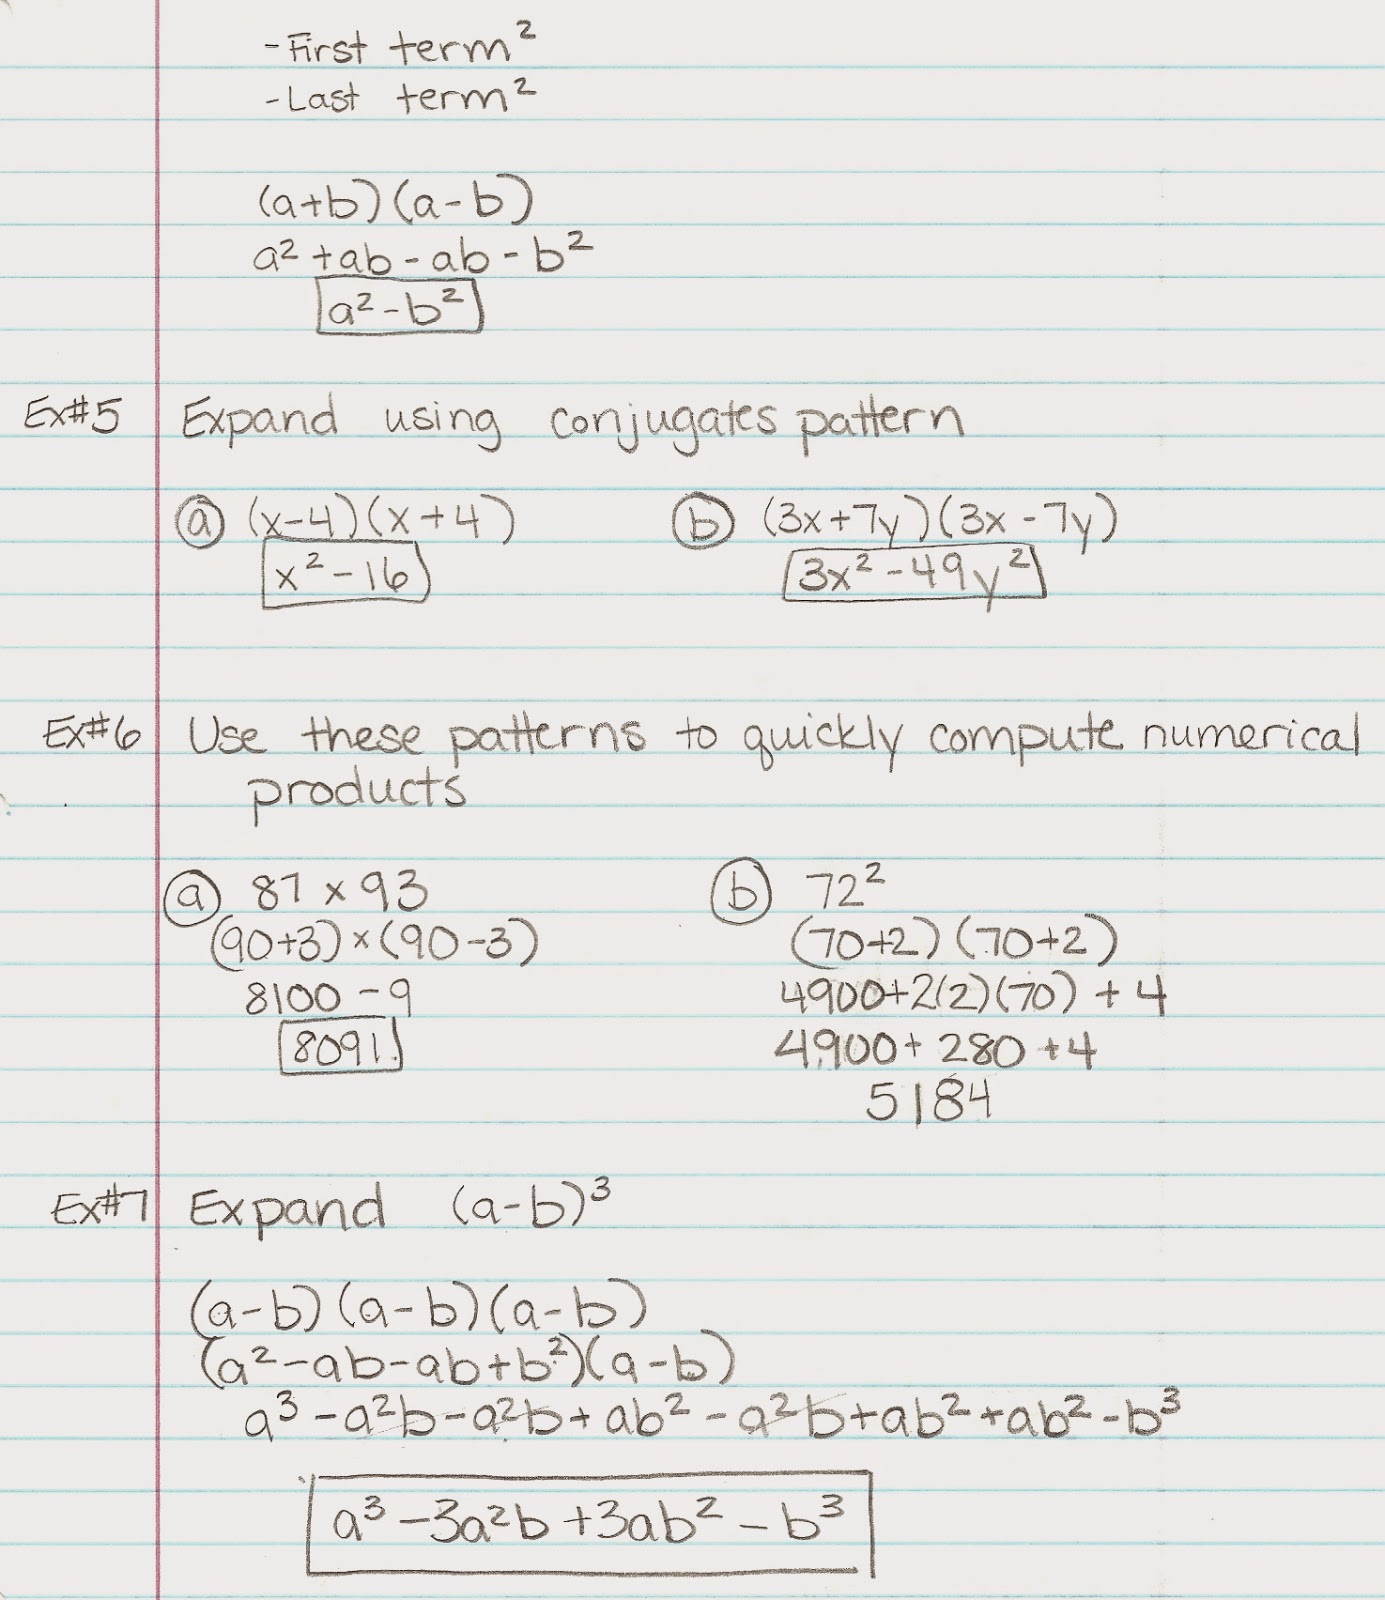 -First term²
-Last term²
(a+b)(a-b)
a²+ab-ab-b²
a²-b²
Ex#5 Expand using conjugates pattern
ⓐ (x-4)(x+4) ⓑ (3x+7y)(3x-7y)
x²-16 3x²-49y²
Ex#6 Use these patterns to quickly compute numerical
products
ⓐ 87 x 93 ⓑ 72²
(90+3)x(90-3) (70+2)(70+2)
8100-9 4900+2(2)(70)+4
8091 4900+280+4
5184
Ex#7 Expand (a-b)³
(a-b)(a-b)(a-b)
(a²-ab-ab+b²)(a-b)
a³-a²b-a²b+ab²-a²b+ab²+ab²-b³
a³-3a²b+3ab²-b³